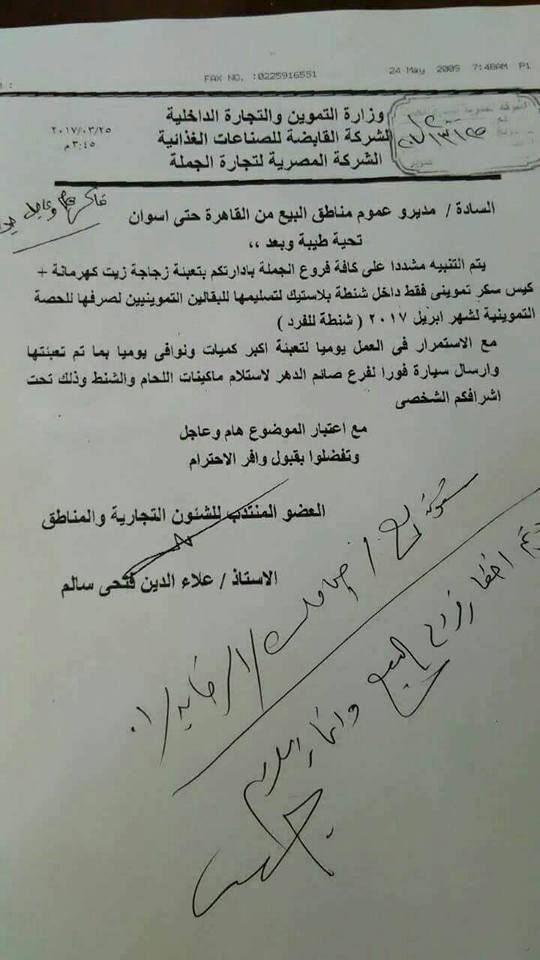 FAX NO. :0225916551
24 May 2009 7:48AM P1
وزارة التموين والتجارة الداخلية
الشركة القابضة للصناعات الغذائية
الشركة المصرية لتجارة الجملة
٢٠١٧/٠٣/٢٥
٣:٤٥ م
السادة / مديرو عموم مناطق البيع من القاهرة حتى اسوان
تحية طيبة وبعد ،،
يتم التنبيه مشددا على كافة فروع الجملة بادارتكم بتعبئة زجاجة زيت كهرمانة +
كيس سكر تموينى فقط داخل شنطة بلاستيك لتسليمها للبقالين التموينيين لصرفها للحصة
التموينية لشهر ابريل ٢٠١٧ ( شنطة للفرد )
مع الاستمرار فى العمل يوميا لتعبئة اكبر كميات ونوافى يوميا بما تم تعبئتها
وارسال سيارة فورا لفرع صائم الدهر لاستلام ماكينات اللحام والشنط وذلك تحت
اشرافكم الشخصى
مع اعتبار الموضوع هام وعاجل
وتفضلوا بقبول وافر الاحترام
العضو المنتدب للشئون التجارية والمناطق
الاستاذ / علاء الدين فتحى سالم